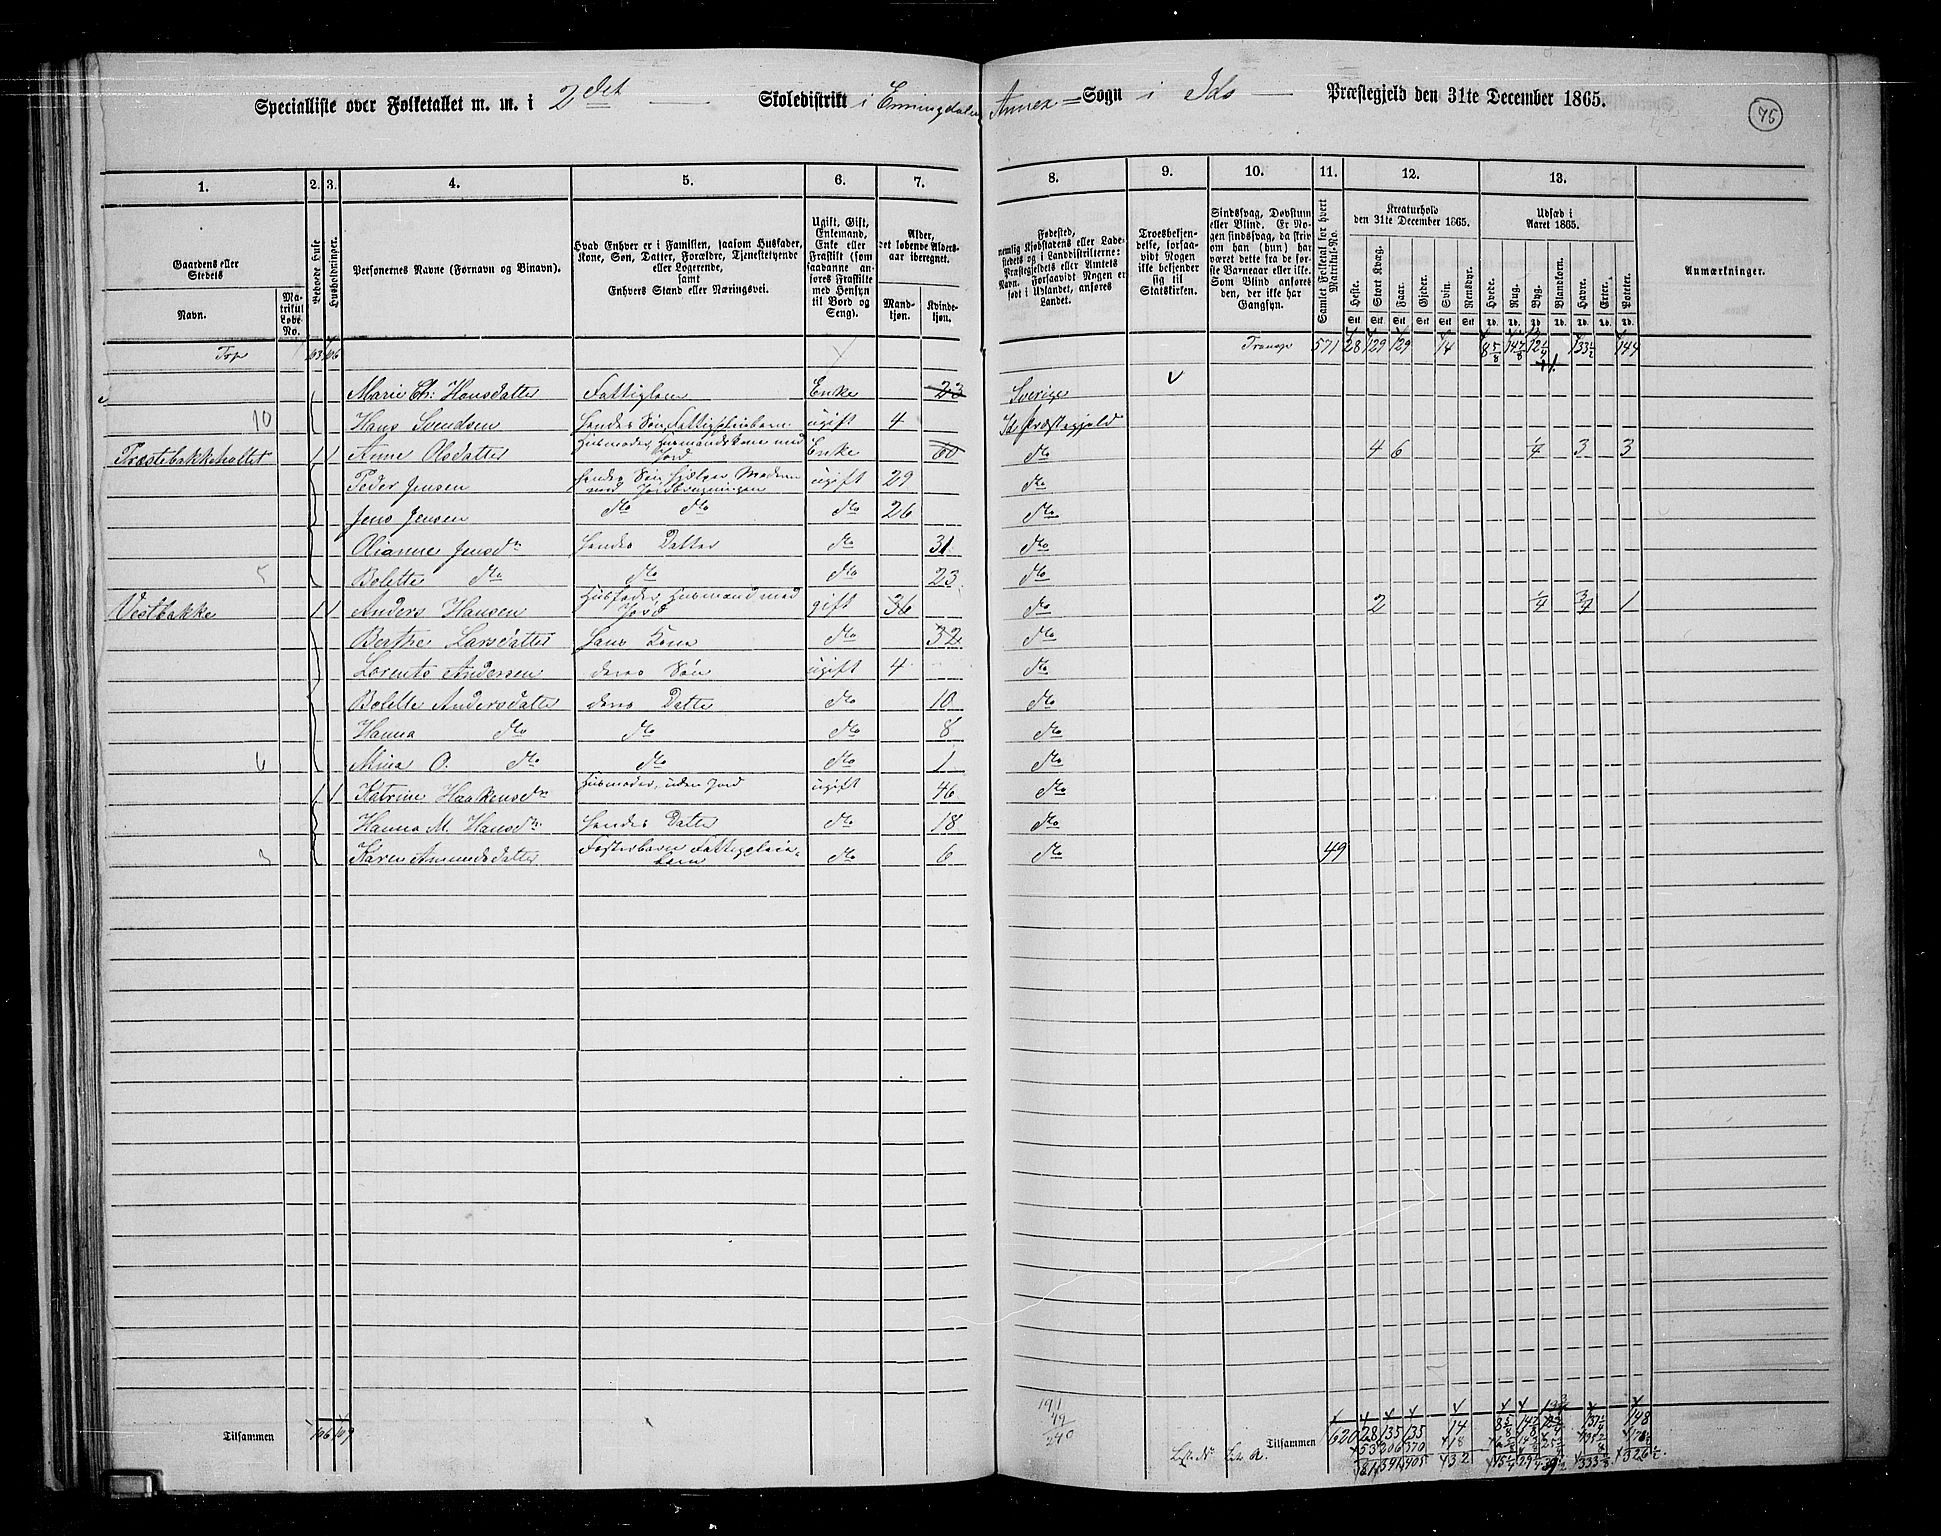 Specialliste over Folketallet m. m. i 2det Skoledistrikt i Enningdalens Annex Sogn i Ids Præstegjeld den 31te December 1865.
75
1. 2. 3. 4. 5. 6. 7. 8. 9. 10. 11. 12. 13.
Gaardens eller Stedets
Navn.
Matrikul Løbe-No.
Beboede Huse
Husholdninger.
Personernes Navne (Fornavn og Binavn).
Hvad Enhver er i Familien, saasom Husfader, Kone, Søn, Datter, Forældre, Tjenestetyende eller Logerende, samt Enhvers Stand eller Næringsvei.
Ugift, Gift, Enkemand, Enke eller Fraskilt (som saadanne anføres Fraskilte med Hensyn til Bord og Seng).
Alder, det løbende Alders-aar iberegnet.
Mand-kjøn.
Kvinde-kjøn.
Fødested, nemlig Kjøbstadens eller Ladestedets og i Landdistrikterne: Præstegjeldets eller Amtets Navn. Forsaavidt Nogen er født i Udlandet, anføres Landet.
Troesbekjendelse, forsaavidt Nogen ikke bekjender sig til Statskirken.
Sindssvag, Døvstum eller Blind. Er Nogen sindssvag, da skrives om han (hun) har været dette fra de første Barneaar eller ikke. Som Blind anføres den, der ikke har Gangsyn.
Samlet Folketal for hvert Matrikul-No.
Kreaturhold den 31te December 1865.
Heste. Stort Kvæg. Faar. Gjeder. Svin. Rensdyr.
Udsæd i Aaret 1865.
Hvede. Rug. Byg. Blandkorn. Havre. Erter. Poteter.
Anmærkninger.
Stk. Stk. Stk. Stk. Stk. Stk. Td. Td. Td. Td. Td. Td. Td.
Trp 103 106 Transp 571 28 129 129 14 8 5/8 14 7/8 12 1/4 133 1/2 144
Marie Ch: Hansdatter Fattiglem Enke 23 Sverige
10 Hans Svendsen Hendes Søn, Fattigpleiebarn ugift 4 Ids Præstegjeld
Præstebakkeholtet 1 1 Anne Olsdatter Husmoder, Husmandskone med Jord Enke 60 do 4 6 1/4 3 3
Peder Jensen Hendes Søn, hjælper Moderen med Jordbrugningen ugift 29 do
Jens Jensen do do do 26 do
Olianne Jensdr Hendes Datter do 31 do
5 Bolette do do do 23 do
Vestbakke 1 1 Anders Hansen Husfader, Husmand med Jord gift 36 do 2 1/4 3/4 1
Berthe Larsdatter Hans Kone do 32 do
Lorents Andersen deres Søn ugift 4 do
Bolette Andersdatter deres Datter do 10 do
Hanna do do do 8 do
6 Mina O. do do do 1 do
1 1 Katrine Haakensdr Husmoder, uden Jord ugift 46 do
Hanna M. Hansdr. Hendes Datter do 18 do
3 Karen Amundsdatter Fosterbarn Fattigpleiebarn do 6 do 49
191
49
240
Tilsammen 106 109 Tilsammen 620 28 135 135 14 148